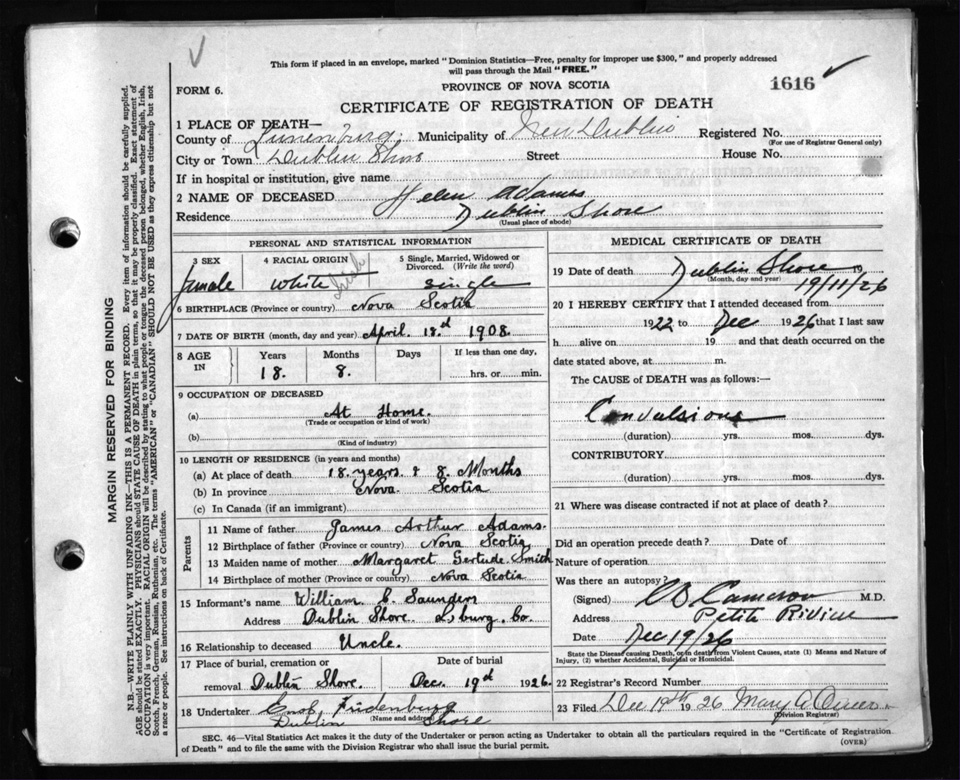 This form if placed in an envelope, marked "Dominion Statistics—Free, penalty for improper use $300," and properly addressed
will pass through the Mail "FREE."
FORM 6.
PROVINCE OF NOVA SCOTIA
1616
CERTIFICATE OF REGISTRATION OF DEATH
1 PLACE OF DEATH—
County of Lunenburg. Municipality of New Dublin Registered No.
(For use of Registrar General only)
City or Town Dublin Shore Street House No.
If in hospital or institution, give name
2 NAME OF DECEASED Helen Adams
Residence Dublin Shore
(Usual place of abode)
PERSONAL AND STATISTICAL INFORMATION
3 SEX 4 RACIAL ORIGIN 5 Single, Married, Widowed or Divorced. (Write the word)
female white Irish single
6 BIRTHPLACE (Province or country) Nova Scotia
7 DATE OF BIRTH (month, day and year) April 18.d 1908.
8 AGE IN Years Months Days If less than one day,
18. 8. hrs. or min.
9 OCCUPATION OF DECEASED
(a) At Home.
(Trade or occupation or kind of work)
(b)
(Kind of industry)
10 LENGTH OF RESIDENCE (in years and months)
(a) At place of death 18. years. & 8. Months
(b) In province Nova. Scotia
(c) In Canada (if an immigrant)
Parents
11 Name of father James Arthur Adams.
12 Birthplace of father (Province or country) Nova Scotia
13 Maiden name of mother Margaret Gertude Smith
14 Birthplace of mother (Province or country) Nova Scotia
15 Informant's name William C. Saunders
Address Dublin Shore L,burg. Co.
16 Relationship to deceased Uncle.
17 Place of burial, cremation or removal Dublin Shore. Date of burial Dec. 19d 1926.
18 Undertaker Enos. Fridenburg
Dublin Shore
(Name and address)
MEDICAL CERTIFICATE OF DEATH
19 Date of death Dublin Shore 19
(Month, day and year) 19/11/26
20 I HEREBY CERTIFY that I attended deceased from
1922 to Dec 1926 that I last saw
h alive on 19 and that death occurred on the
date stated above, at m.
The CAUSE of DEATH was as follows:—
Convulsions
(duration) yrs. mos. dys.
CONTRIBUTORY
(duration) yrs. mos. dys.
21 Where was disease contracted if not at place of death?
Did an operation precede death? Date of
Nature of operation
Was there an autopsy?
(Signed) Cameron M.D.
Address Petite Riviere
Date Dec 19/26
State the Disease causing Death, or in death from Violent Causes, state (1) Means and Nature of
Injury, (2) whether Accidental, Suicidal or Homicidal.
22 Registrar's Record Number
23 Filed Dec 19th 1926 Mary A
(Division Registrar)
SEC. 46—Vital Statistics Act makes it the duty of the Undertaker or person acting as Undertaker to obtain all the particulars required in the "Certificate of Registration
of Death" and to file the same with the Division Registrar who shall issue the burial permit.
(OVER)
MARGIN RESERVED FOR BINDING
N.B.—WRITE PLAINLY WITH UNFADING INK—THIS IS A PERMANENT RECORD. Every item of information should be carefully supplied.
AGE should be stated EXACTLY. PHYSICIANS should STATE CAUSE OF DEATH in plain terms, so that it may be properly classified. Exact statement of
OCCUPATION is very important. RACIAL ORIGIN will be described by stating to what people or tongue the deceased person belonged, whether English, Irish,
Scotch, French, German, Russian, Ruthenian, etc. The terms "AMERICAN" or "CANADIAN" SHOULD NOT BE USED as they express citizenship but not
a race or people. See instructions on back of Certificate.